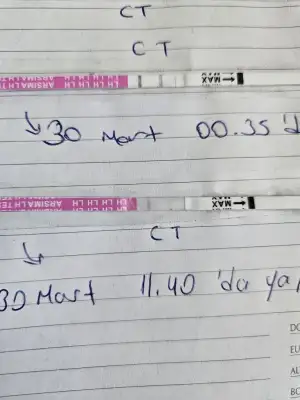 CT
C T
LH LH LH LH ARSIMA LH TE
MAX
30 Mart 00.35'd
LH LH LH LH ARSIMA LH TE
MAX
CT
30 Mart 11.40 'da ya
DO
EU
AL
BO